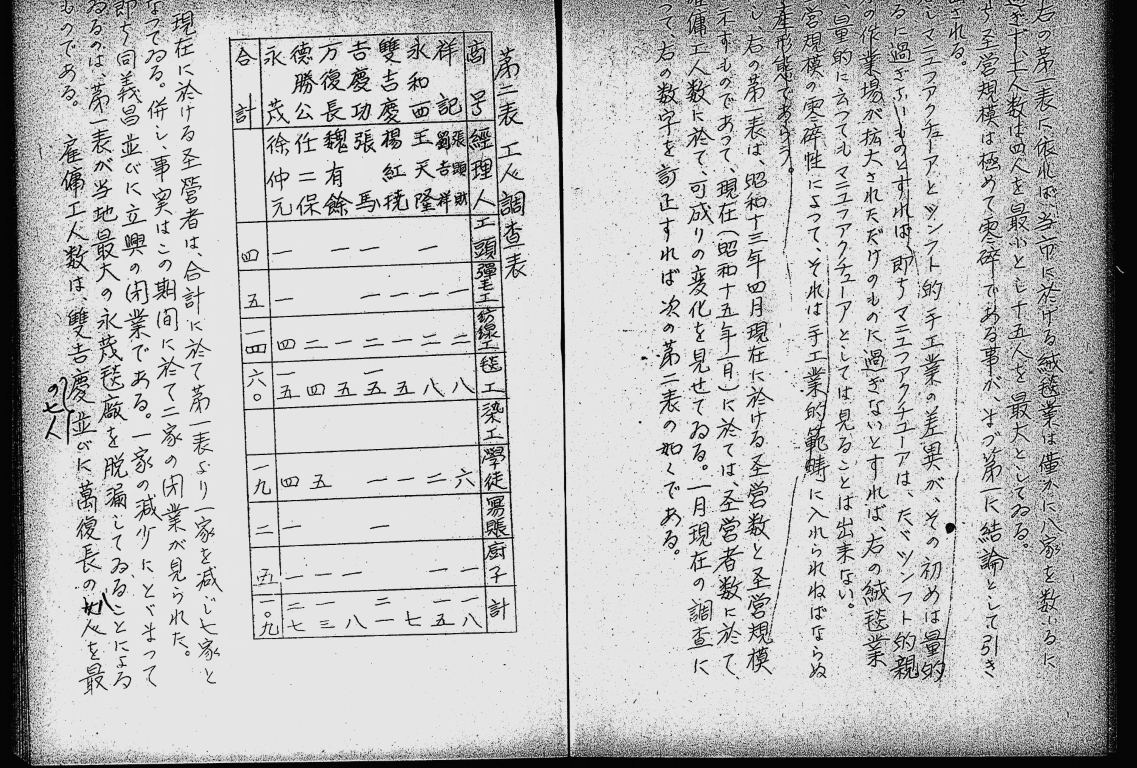 右の第一表に依れば当市に於ける絨毯業は僅かに八家を数ふるに
過ぎず工人数は四人を最小とし十五人を最大としてゐる。
即ち圣営規模は極めて零碎である事が、まづ第一に結論として引き
出される。
しマニュアクチューアとツンフト的手工業の差異が、その初めは量的
なるに過ぎないものとすれば、即ちマニュアクチューアは、たゞツンフト的親
方の作業場が拡大されただけのものに過ぎないとすれば、右の絨毯業
は、量的に云つてもマニュアクチューアとしては見ることは出来ない。
圣営規模の零碎性によつて、それは手工業的範疇に入れられねばならぬ
生産形態であらう。
し、右の第一表は、昭和十三年四月現在に於ける圣営数と圣営規模
を示すものであつて、現在(昭和十五年一月)に於ては、圣営者数に於て、
雇傭工人数に於て、可成りの変化を見せてゐる。一月現在の調査に
よつて、右の数字を訂正すれば次の第二表の如くである。
第二表 工人調査表
商号 經理人 工頭 彈毛工 紡線工 毯工 染工 學徒 寫賬 廚子 計
祥記 張頭財 劉吉祥 二 八 六 一 一八
永和西 王天隆 一 一 二 八 二 一 一五
雙吉慶 楊紅曉 一 一 五 一 七
吉慶功 張馬 一 一 二 一五 一 一 二一
万復長 魏有餘 一 一 五 一 八
德勝公 任二保 二 四 五 一 一三
永茂 徐仲元 一 一 四 一五 四 一 一 二七
合計 四 五 一四 六〇 一九 二 五 一〇九
現在に於ける圣営者は、合計に於て第一表より一家を減じ七家と
なつてゐる。併し、事実はこの期間に於て二家の閉業が見られた。
即ち同義昌並びに立興の閉業である。一家の減少にとゞまつて
ゐるのは、第一表が当地最大の永茂毯廠を脱漏してゐることによる
ものである。 雇傭工人数は、雙吉慶並びに萬復長の八人を最
の七人